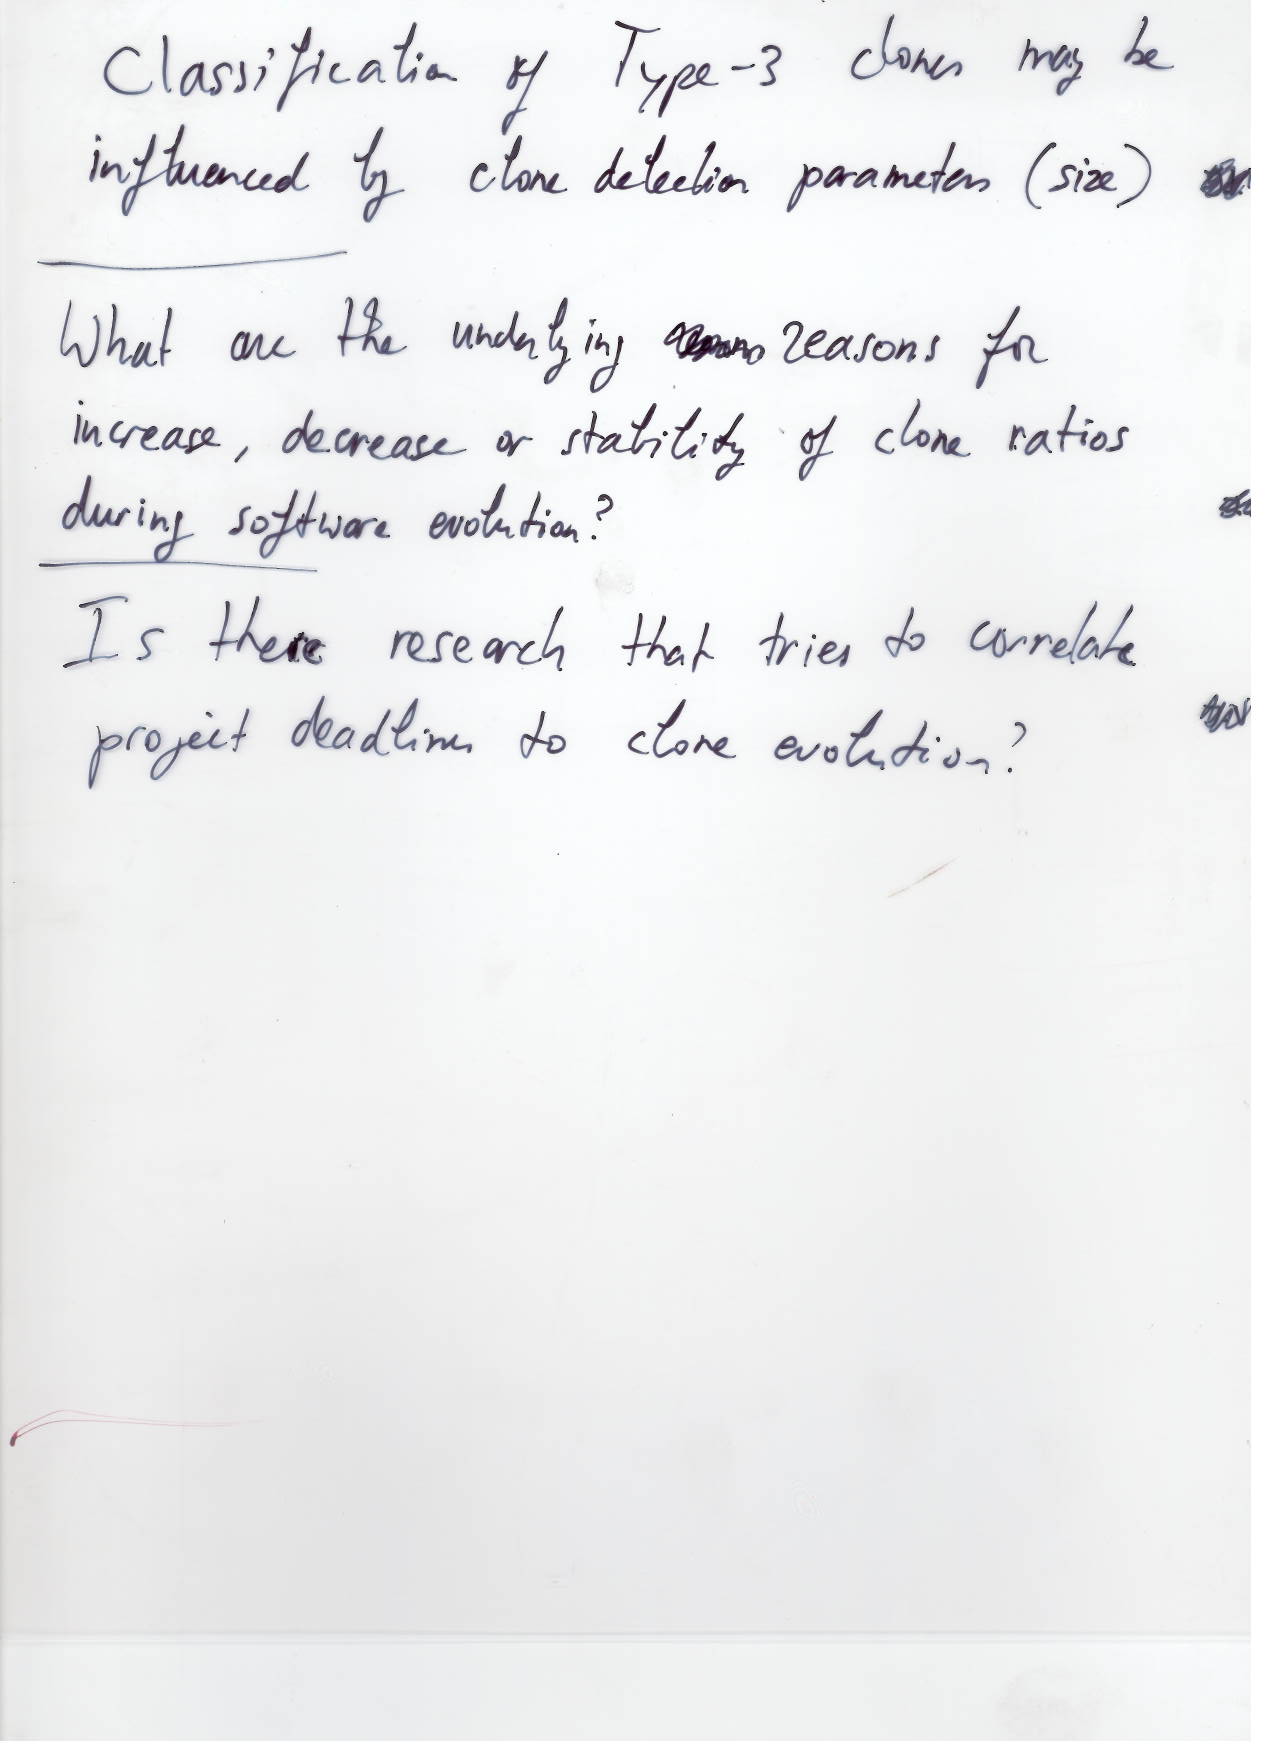 Classification of Type-3 clones may be
influenced by clone detection parameters (size)
What are the underlying reasons for
increase, decrease or stability of clone ratios
during software evolution?
Is there research that tries to correlate
project deadlines to clone evolution?